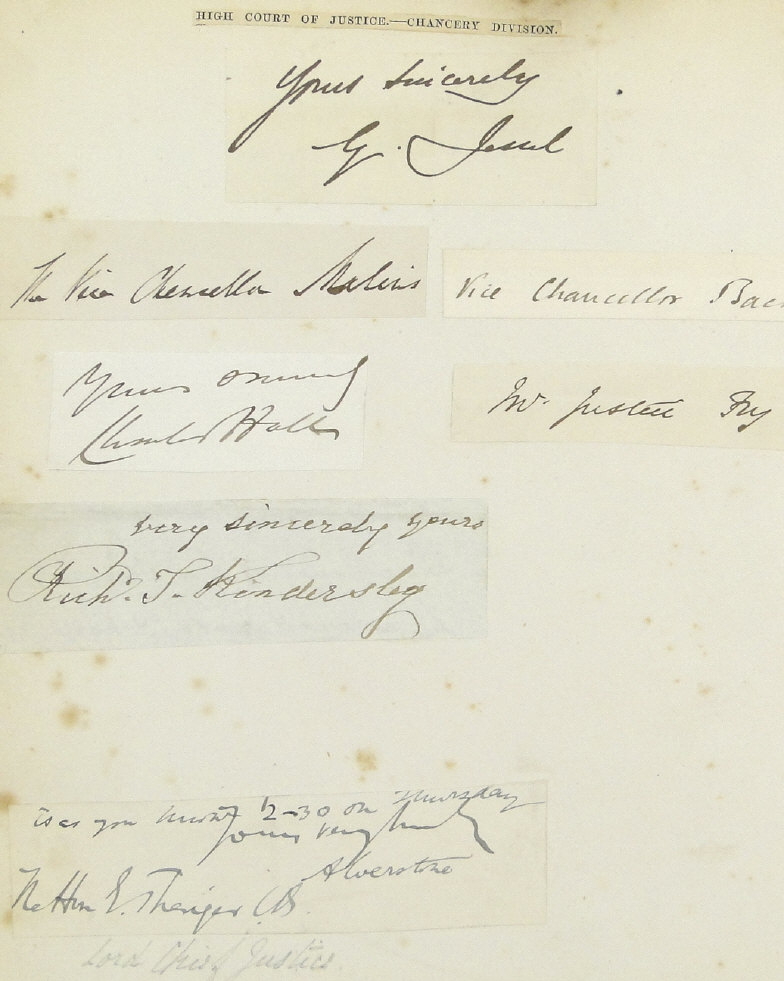 HIGH COURT OF JUSTICE.—CHANCERY DIVISION.
Yours sincerely
G. Jessel
The Vice Chancellor Malins
Vice Chancellor Bac
Yours
Charles Hall
Mr. Justice Fry
very sincerely yours
Richd. T. Kindersley
as you 12-30 on Thursday
yours very
Alverstone
The Hon E. Thesiger CB
Lord Chief Justice